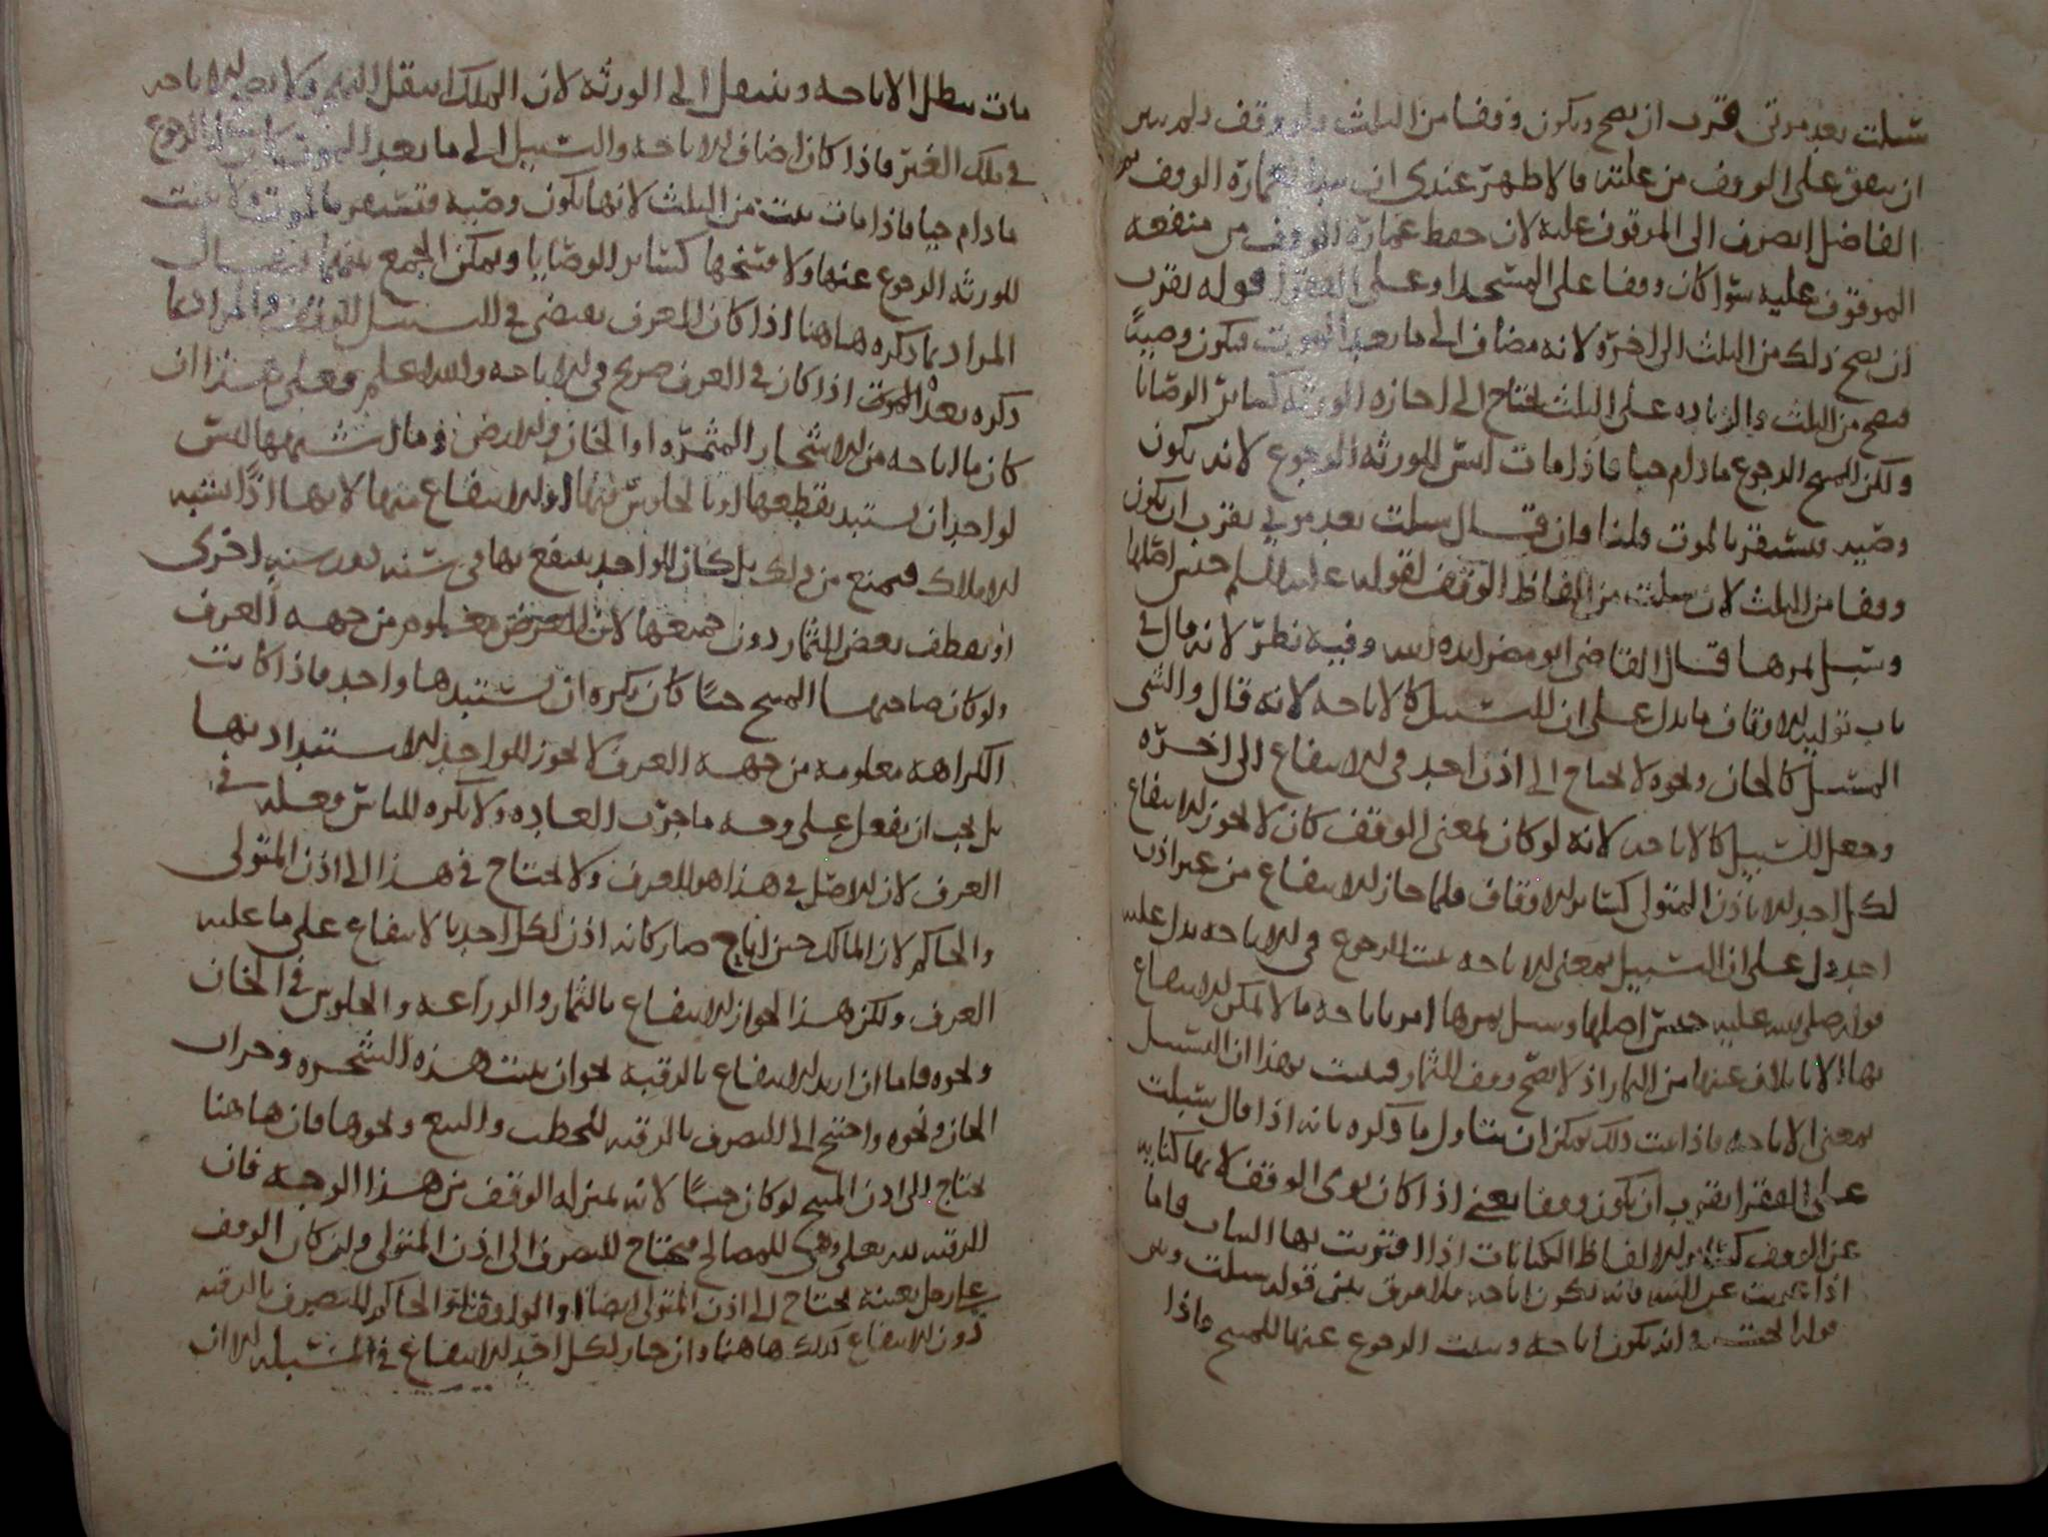 سبلت بعد موتى قرب ان يصح ويكون وقفا من الثلث ولو وقف ولم يبين
ان ينفق على الوقف من غلته فالاظهر عندي ان يبدا بعمارة الوقف ثم
الفاضل يصرف الى الموقوف عليه لان حفظ عمارة الوقف من منفعه
الموقوف عليه سوا كان وقفا على المسجد او على الفقرا قوله يقرب
ان يصح ذلك من الثلث الى اخره لانه مضاف الى ما بعد الموت فيكون وصية
فيصح من الثلث والزياده على الثلث يحتاج الى اجازه الورثه كسائر الوصايا
ولكن للمسبح الرجوع ما دام حيا فاذا مات ليس للورثه الرجوع لانه يكون
وصيه فيستقر بالموت قلنا وان قال سبلت بعد موتي يقرب ان يكون
وقفا من الثلث لان سبلت من الفاظ الوقف لقوله عليه السلم حبس اصلها
وسبل ثمرها قال القاضي ابو مضر ايده الله وفيه نظر لانه قال في
باب تولية الاوقاف ما يدل على ان التسبيل كالاباحه لانه قال والشي
المسبل كالخان ونحوه لا يحتاج الى اذن احد في الانتفاع الى اخره
وجعل التسبيل كالاباحه لانه لو كان بمعنى الوقف كان لا يجوز الانتفاع
لكل احد الا باذن المتولي كسائر الاوقاف فلما جاز الانتفاع من غير اذن
احد دل على ان التسبيل بمعنى الاباحه يثبت الرجوع في الاباحه يدل عليه
قوله صلى الله عليه حبس اصلها وسبل ثمرها امر باباحه ما لا يمكن الانتفاع
بها الا باتلاف عينها من الثمار اذ لا يصح وقف الثمار فثبت بهذا ان التسبيل
بمعنى الاباحه فاذا ثبت ذلك يمكن ان يتاول ما ذكره بانه اذا قال سبلت
على الفقرا يقرب ان يكون وقفا يعني اذا كان نوى الوقف لانها كنايه
عن الوقف كسائر الالفاظ الكنايات اذا اقترنت بها النيات فاما
اذا عريت عن النيه فانه يكون اباحه فلا فرق بين قوله سبلت وبين
قوله ابحت وانه يكون اباحه ويثبت الرجوع عنها للمبيح واذا
مات يبطل الاباحه وينتقل الى الورثه لان الملك انتقل اليهم ولا يصح الاباحه
في ملك الغير فاذا كان اضاف الاباحه والتسبيل الى ما بعد الموت كان له الرجوع
ما دام حيا فاذا مات ثبت من الثلث لانها يكون وصيه فتستقر بالموت ولا يثبت
للورثه الرجوع عنها ولا فسخها كسائر الوصايا ويمكن الجمع بينهما فيقال
المراد بما ذكره هاهنا اذا كان العرف يقتضي في التسبيل الوقف والمراد بما
ذكره بعد الموت اذا كان في العرف صريح في الاباحه والله اعلم وعلى هذا ان
كان ما اباحه من الاشجار المثمره او الخان والارض وما اشبهها ليس
لواحد ان يستبد بقطعها او بالجلوس فيها او الانتفاع منها لانها اذا اشتبه
الاملاك فيمنع من ذلك بل كان الواحد ينتفع بها في سنه دون سنه اخرى
او يقطف بعض الثمار دون جميعها لان الغرض معلوم من جهه العرف
ولو كان صاحبها المبيح حيا كان يكره ان يستبدها واحد فاذا كانت
الكراهه معلومه من جهه العرف لا يجوز للواحد الاستبداد بها
بل يجب ان يفعل على وجه ما جرت العاده ولا يكره الناس وفعله في
العرف لان الاصل في هذا هو العرف ولا يحتاج في هذا الى اذن المتولي
والحاكم لان المالك حين اباح صار كانه اذن لكل احد بالانتفاع على ما عليه
العرف ولكن هذا الجواز الانتفاع بالثمار والزراعه والجلوس في الخان
ونحوه فاما ان اريد الانتفاع بالرقبه نحو ان يبست هذه الشجره وخراب
الخان ونحوه واحتيج الى التصرف بالرقبه للحطب والبيع ونحوها فان هاهنا
يحتاج الى اذن المبيح لو كان حيا لانه بمنزله الوقف من هذا الوجه فان
الرقبه لله تعالى وهي للمصالح فيحتاج التصرف الى اذن المتولي وان كان الوقف
على رجل بعينه يحتاج الى اذن المتولي ايضا او الواقف او الحاكم للتصرف بالرقبه
دون الانتفاع كذلك هاهنا وان جاز لكل احد الانتفاع في المسبله الا ان